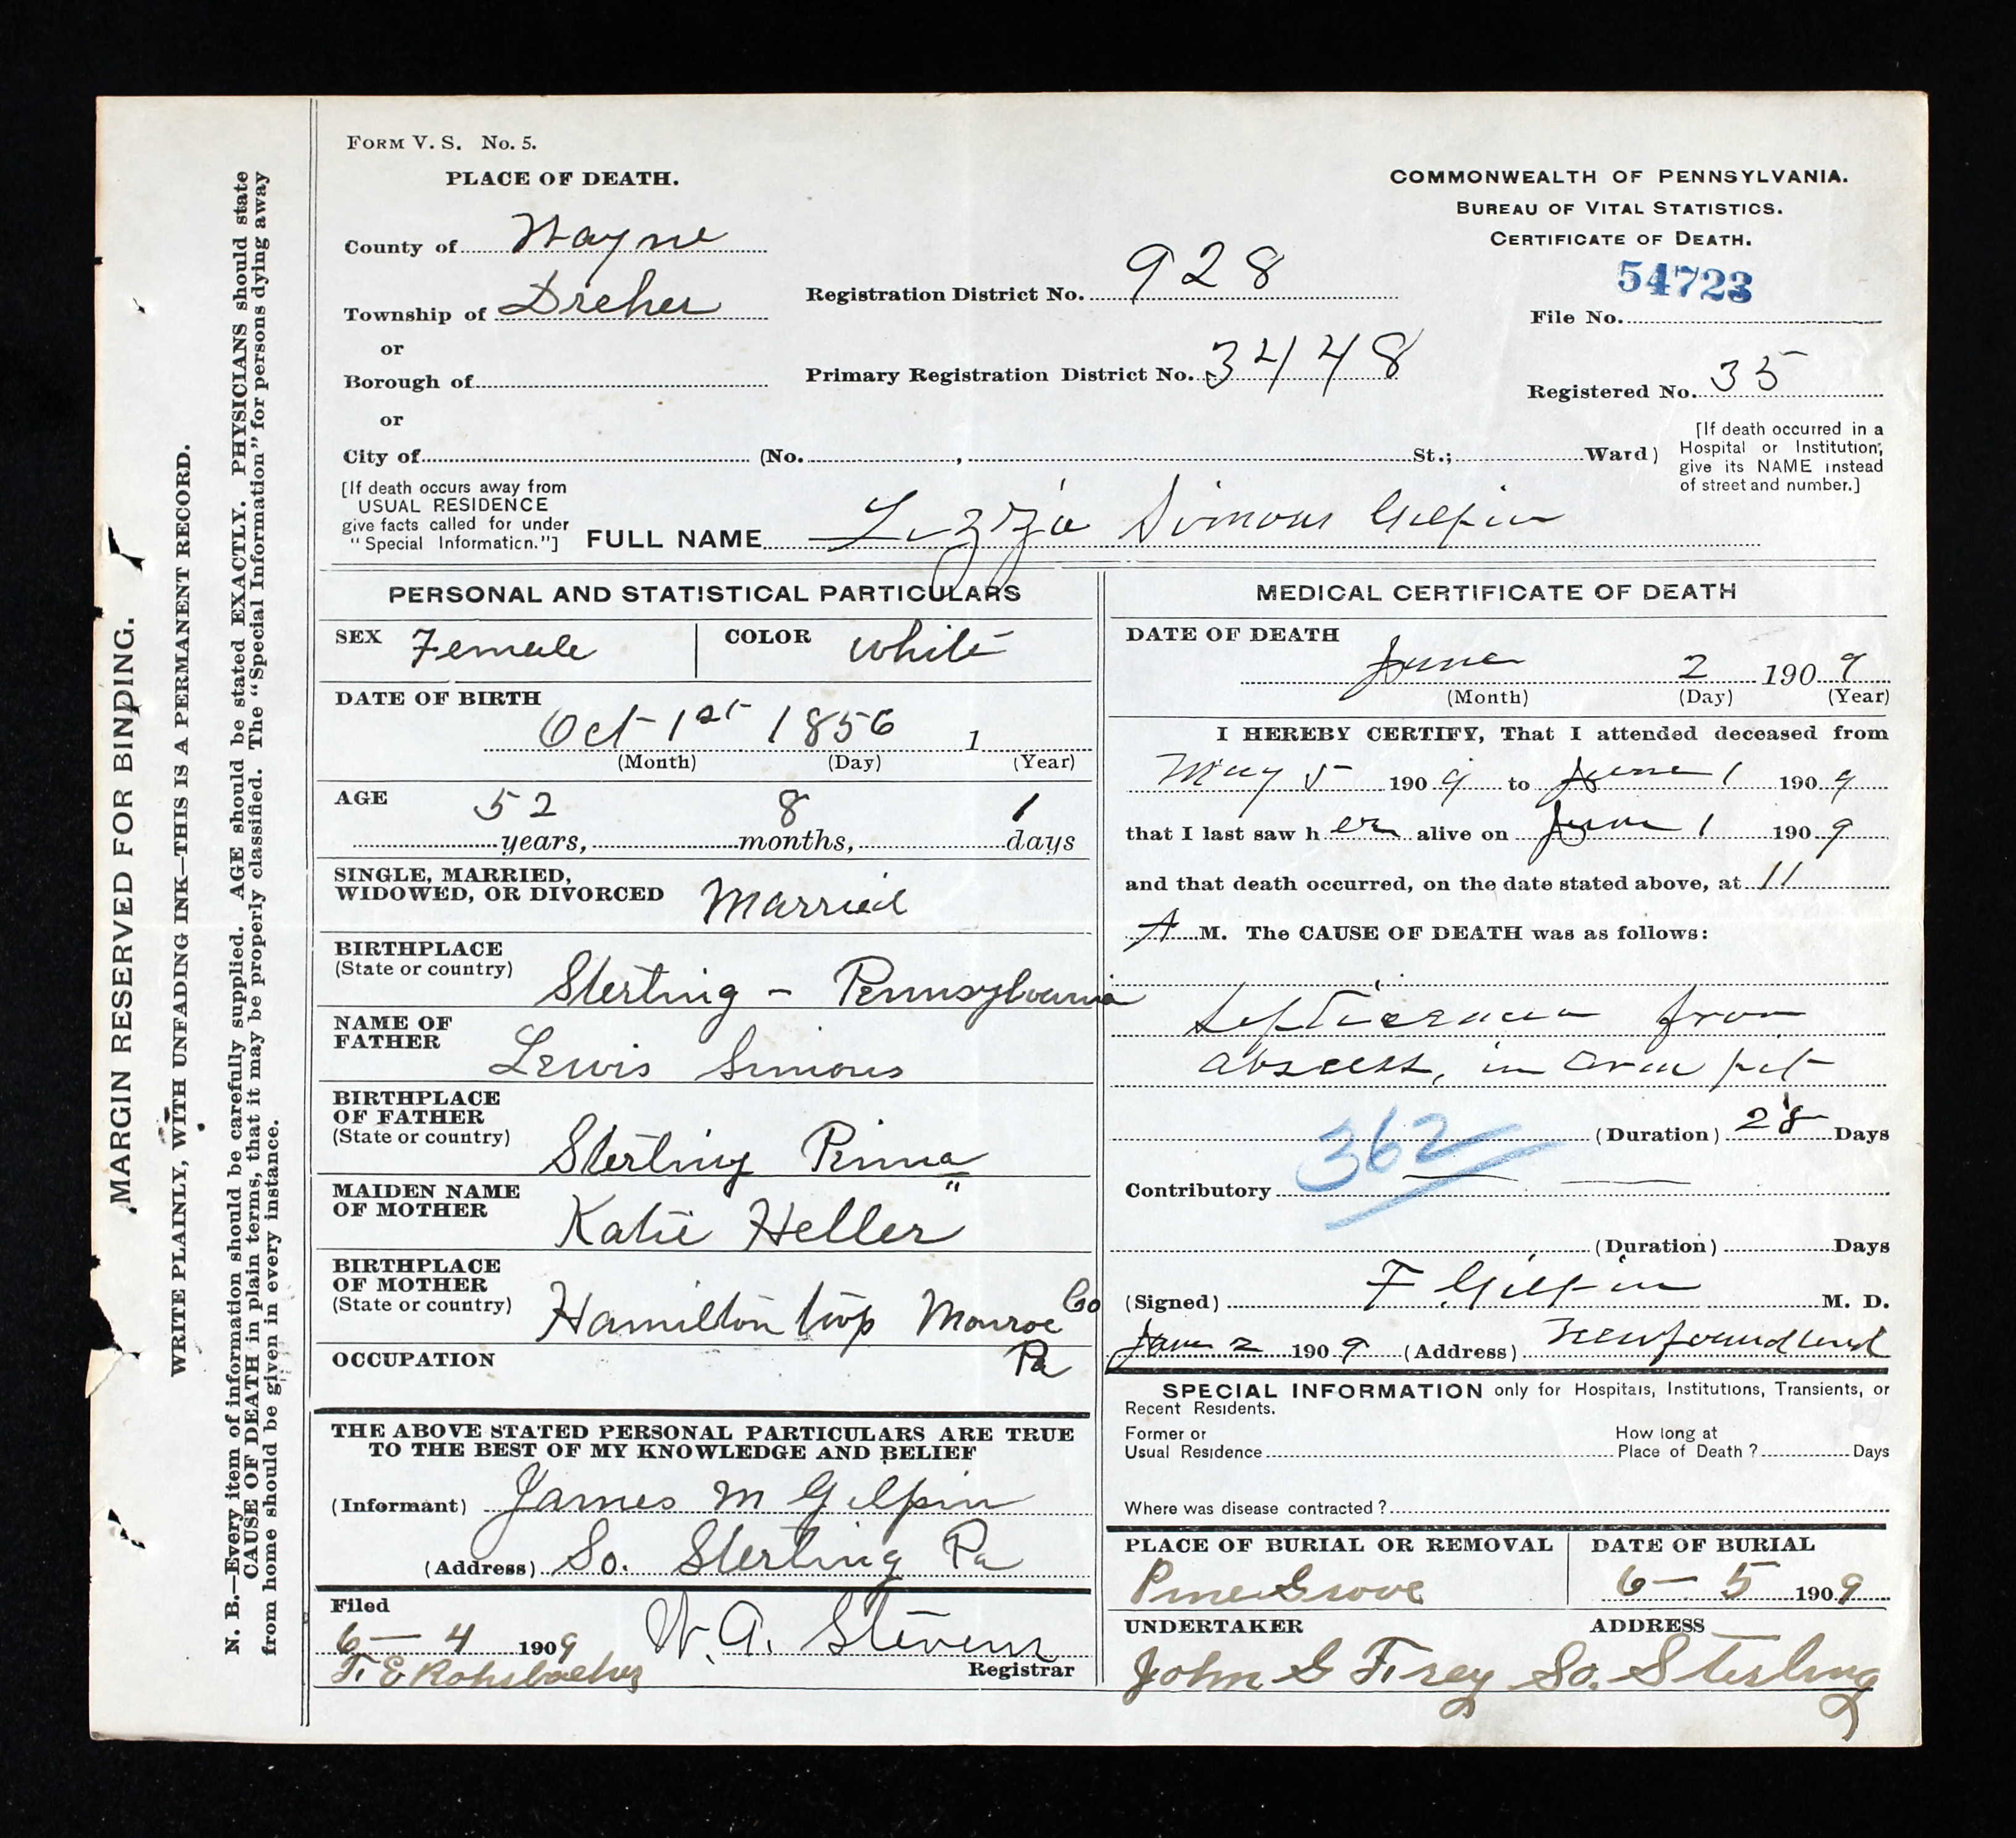 MARGIN RESERVED FOR BINDING.
WRITE PLAINLY, WITH UNFADING INK—THIS IS A PERMANENT RECORD.
N. B.—Every item of information should be carefully supplied. AGE should be stated EXACTLY. PHYSICIANS should state
CAUSE OF DEATH in plain terms, that it may be properly classified. The "Special Information" for persons dying away
from home should be given in every instance.
FORM V. S. No. 5.
PLACE OF DEATH.
County of Wayne
Township of Dreher
or
Borough of
or
City of (No. , St.; Ward)
Registration District No. 928
Primary Registration District No. 3448
COMMONWEALTH OF PENNSYLVANIA.
BUREAU OF VITAL STATISTICS.
CERTIFICATE OF DEATH.
54723
File No.
Registered No. 35
[If death occurred in a
Hospital or Institution,
give its NAME instead
of street and number.]
[If death occurs away from
USUAL RESIDENCE
give facts called for under
"Special Information."]
FULL NAME Lizzie Simons Gilpin
PERSONAL AND STATISTICAL PARTICULARS
SEX Female COLOR White
DATE OF BIRTH
Oct 1st 1856 1
(Month) (Day) (Year)
AGE 52 8 1
years, months, days
SINGLE, MARRIED,
WIDOWED, OR DIVORCED Married
BIRTHPLACE
(State or country) Sterling - Pennsylvania
NAME OF
FATHER Lewis Simons
BIRTHPLACE
OF FATHER
(State or country) Sterling Penna
MAIDEN NAME
OF MOTHER Katie Heller
BIRTHPLACE
OF MOTHER
(State or country) Hamilton twp Monroe Co
Pa
OCCUPATION
THE ABOVE STATED PERSONAL PARTICULARS ARE TRUE
TO THE BEST OF MY KNOWLEDGE AND BELIEF
(Informant) James M Gilpin
(Address) So. Sterling Pa
Filed
6-4 1909 W. A. Stevens
Registrar
F. E Rohsbacher
MEDICAL CERTIFICATE OF DEATH
DATE OF DEATH
June 2 1909
(Month) (Day) (Year)
I HEREBY CERTIFY, That I attended deceased from
May 5 1909 to June 1 1909
that I last saw her alive on June 1 1909
and that death occurred, on the date stated above, at 11
A M. The CAUSE OF DEATH was as follows:
Septicaemia from
abscess, in arm pit
(Duration) 28 Days
362
Contributory
(Duration) Days
(Signed) F Gilpin M. D.
June 2 1909 (Address) Newfoundland
SPECIAL INFORMATION only for Hospitals, Institutions, Transients, or
Recent Residents.
Former or
Usual Residence
How long at
Place of Death? Days
Where was disease contracted?
PLACE OF BURIAL OR REMOVAL
Pine Grove
DATE OF BURIAL
6-5 1909
UNDERTAKER
John G Frey
ADDRESS
So. Sterling